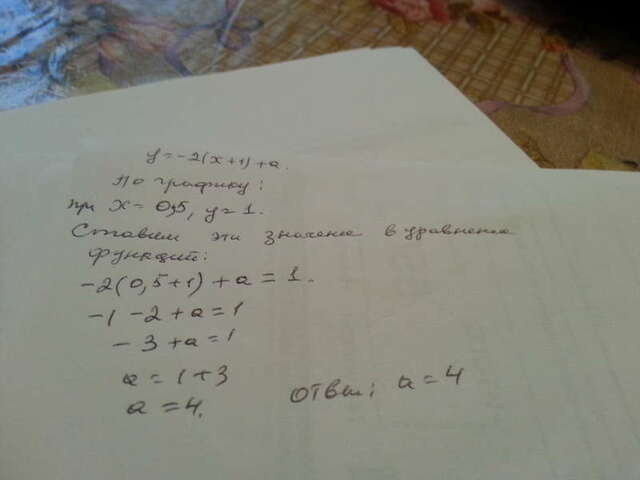 y = -2(x+1)+a.
По графику:
при x = 0,5, y = 1.
Ставим эти значение в уравнение
функций:
-2(0,5+1)+a = 1.
-1 -2+a = 1
-3+a = 1
a = 1+3
a = 4.
Ответ; a = 4